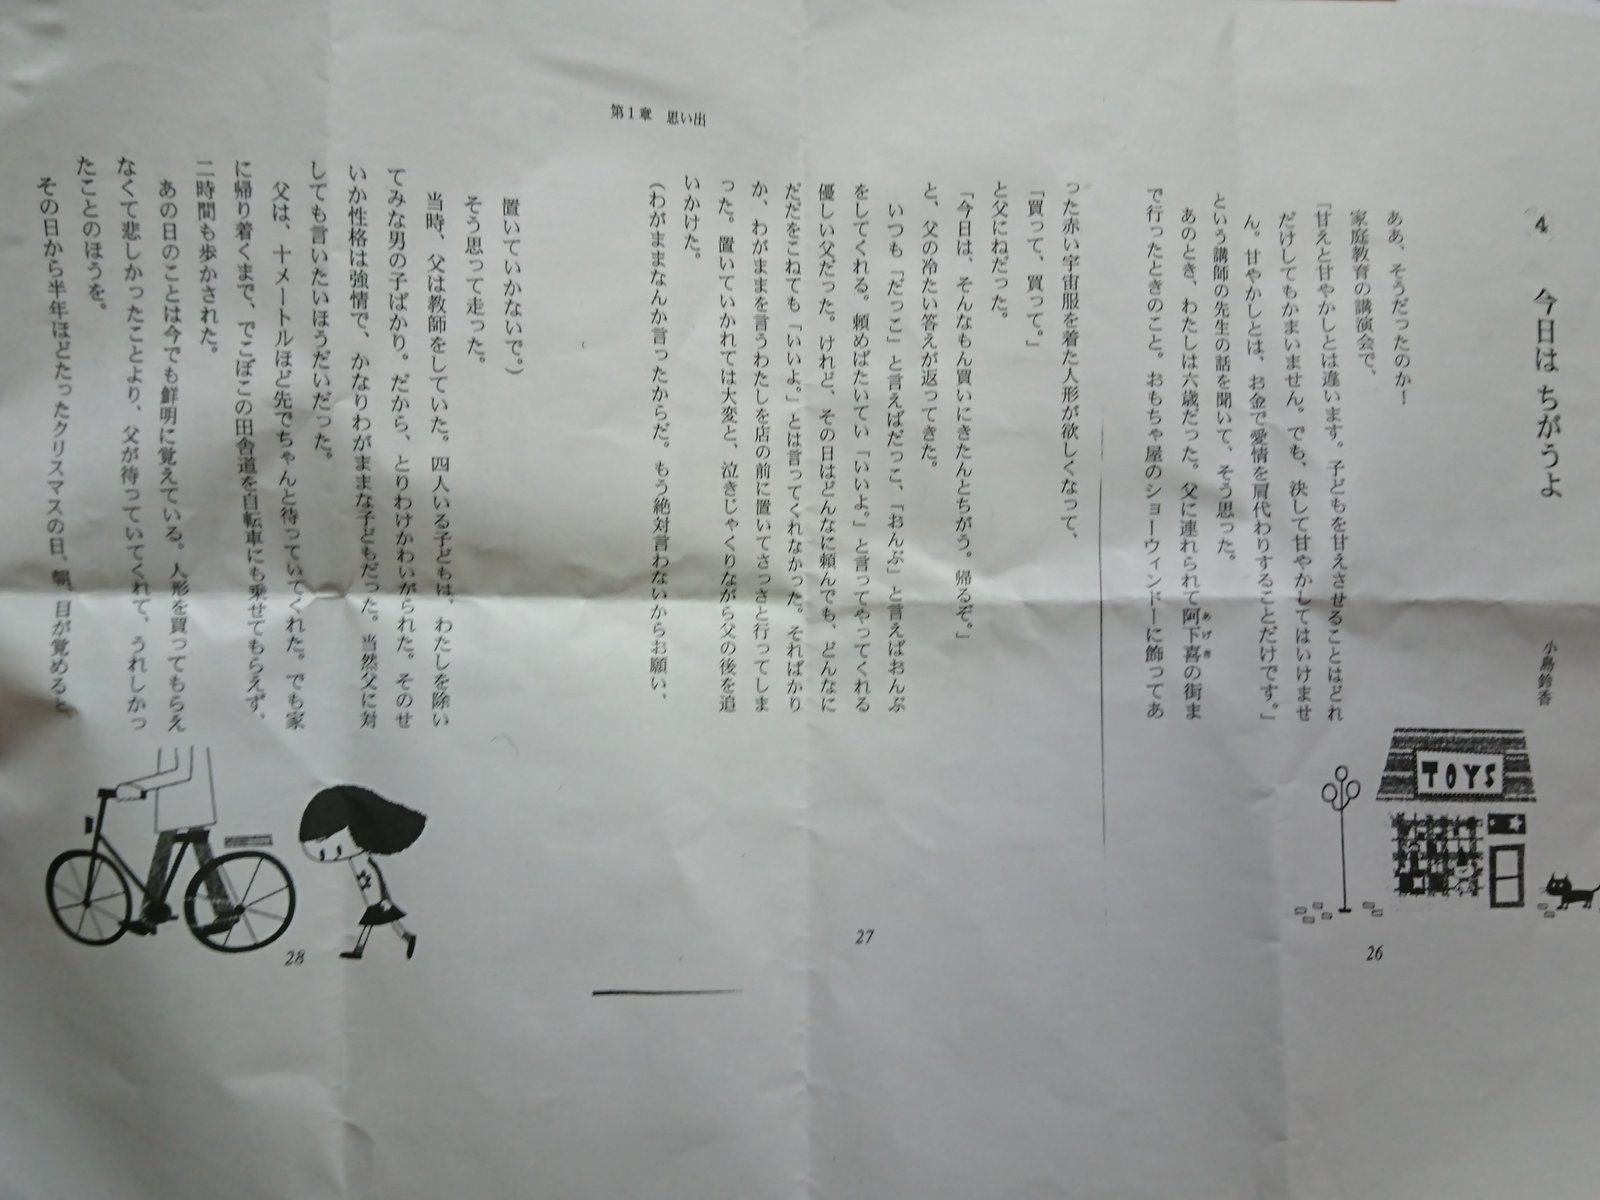 4 今日は ちがうよ
小島鈴香
ああ、そうだったのか！
家庭教育の講演会で、
「甘えと甘やかしとは違います。子どもを甘えさせることはどれ
だけしてもかまいません。でも、決して甘やかしてはいけませ
ん。甘やかしとは、お金で愛情を肩代わりすることだけです。」
という講師の先生の話を聞いて、そう思った。
あのとき、わたしは六歳だった。父に連れられて阿下喜の街ま
あげき
で行ったときのこと。おもちゃ屋のショーウィンドーに飾ってあ
TOYS
26
った赤い宇宙服を着た人形が欲しくなって、
「買って、買って。」
と父にねだった。
「今日は、そんなもん買いにきたんとちがう。帰るぞ。」
と、父の冷たい答えが返ってきた。
いつも「だっこ」と言えばだっこ、「おんぶ」と言えばおんぶ
をしてくれる。頼めばたいてい「いいよ。」と言ってやってくれる
優しい父だった。けれど、その日はどんなに頼んでも、どんなに
だだをこねても「いいよ。」とは言ってくれなかった。そればかり
か、わがままを言うわたしを店の前に置いてさっさと行ってしま
った。置いていかれては大変と、泣きじゃくりながら父の後を追
いかけた。
（わがままなんか言ったからだ。もう絶対言わないからお願い、
第1章 思い出
27
置いていかないで。）
そう思って走った。
当時、父は教師をしていた。四人いる子どもは、わたしを除い
てみな男の子ばかり。だから、とりわけかわいがられた。そのせ
いか性格は強情で、かなりわがままな子どもだった。当然父に対
しても言いたいほうだいだった。
父は、十メートルほど先でちゃんと待っていてくれた。でも家
に帰り着くまで、でこぼこの田舎道を自転車にも乗せてもらえず、
二時間も歩かされた。
あの日のことは今でも鮮明に覚えている。人形を買ってもらえ
なくて悲しかったことより、父が待っていてくれて、うれしかっ
たことのほうを。
その日から半年ほどたったクリスマスの日、朝、目が覚めると、
28